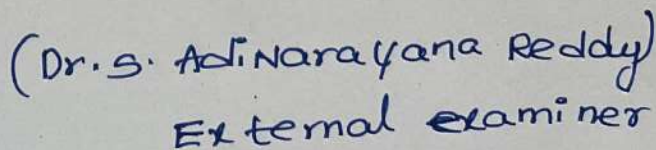 (Dr. S. AdiNarayana Reddy)
External examiner